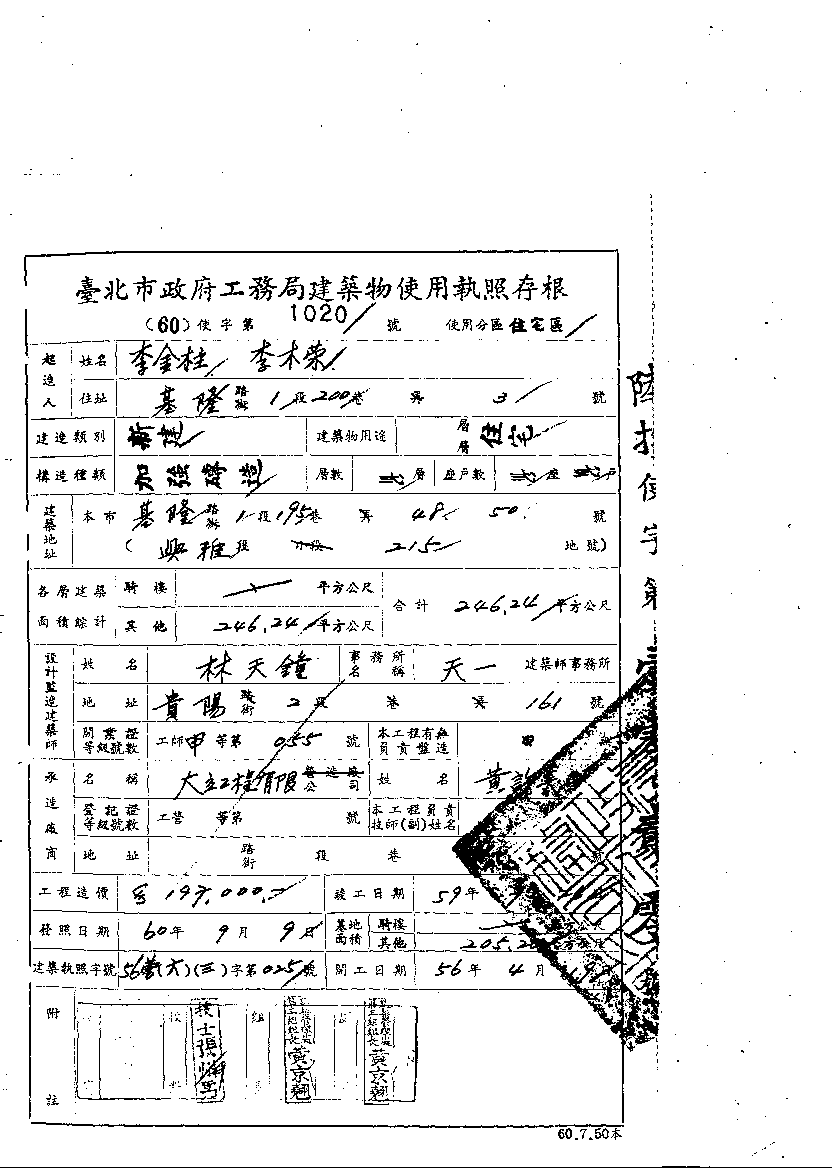 臺北市政府工務局建築物使用執照存根
(60)使字第 1020 號 使用分區 住宅區
起造人 姓名 李金柱 李木荣
住址 基隆 路街 1段200巷 弄 3 號
建造類別 新建 建築物用途 層層 住宅
構造種類 加強磚造 層數 層 座戶數 座
建築地址 本市 基隆 路街 1段195巷 弄 48. 50. 號
(興雅段 小段 215 地號)
各層建築面積綜計 騎樓 平方公尺 合計 246.24 平方公尺
其他 246.24 平方公尺
設計監造建築師 姓名 林天鐘 事務所名稱 天一 建築師事務所
地址 貴陽 路街 2段 巷 弄 161 號
開業證等級號數 工師甲等第 055 號 本工程有無負責監造
承造廠商 名稱 大立工程有限 營造廠公司 姓名 黃
登記證等級號數 工營 等第 號 本工程負責技師(副)姓名
地址 路街 段 巷
工程造價 竣工日期 59年
發照日期 60年 9月 9日 基地面積 騎樓
其他 205.2
建築執照字號 字第025號 開工日期 56年 4月
附註
技士張
黃京翹
黃京翹
60.7.50本
使字第